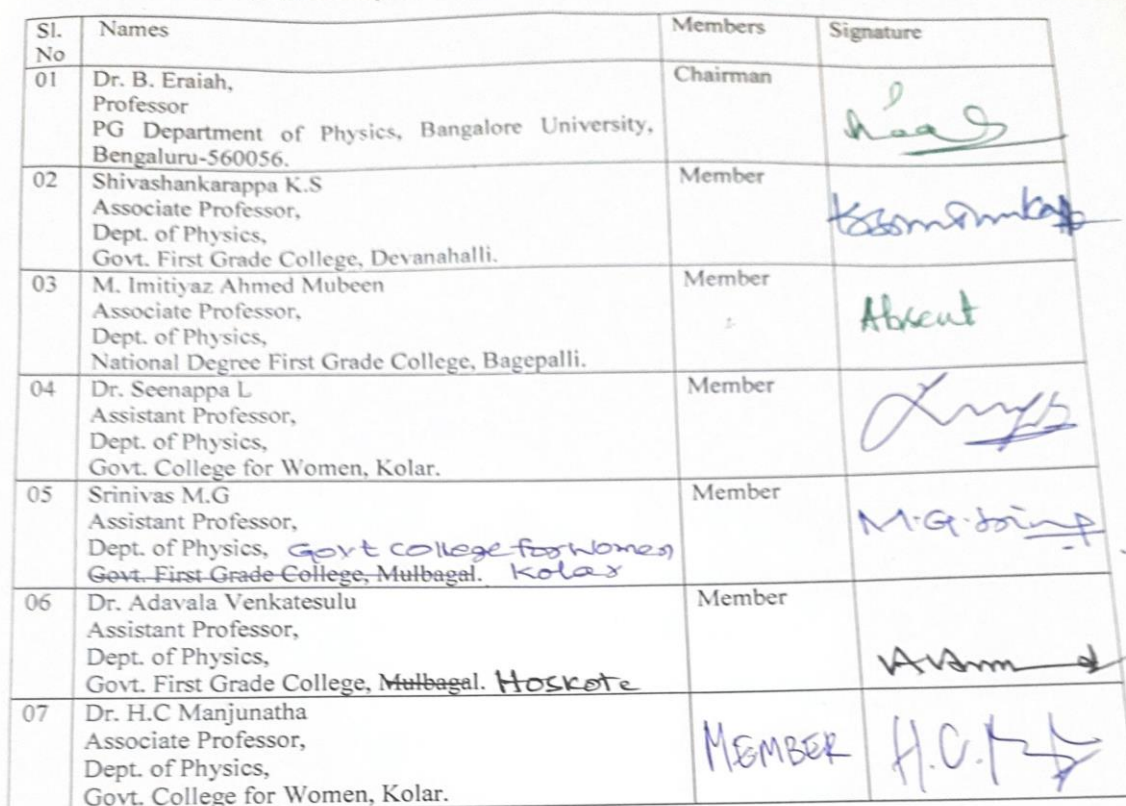 Sl. No Names Members Signature
01 Dr. B. Eraiah, Chairman
Professor
PG Department of Physics, Bangalore University,
Bengaluru-560056.
02 Shivashankarappa K.S Member
Associate Professor,
Dept. of Physics,
Govt. First Grade College, Devanahalli.
03 M. Imitiyaz Ahmed Mubeen Member
Associate Professor, Absent
Dept. of Physics,
National Degree First Grade College, Bagepalli.
04 Dr. Seenappa L Member
Assistant Professor,
Dept. of Physics,
Govt. College for Women, Kolar.
05 Srinivas M.G Member
Assistant Professor,
Dept. of Physics, Govt College for Women
Govt. First Grade College, Mulbagal. Kolar
06 Dr. Adavala Venkatesulu Member
Assistant Professor,
Dept. of Physics,
Govt. First Grade College, Mulbagal. Hoskote
07 Dr. H.C Manjunatha
Associate Professor, MEMBER
Dept. of Physics,
Govt. College for Women, Kolar.